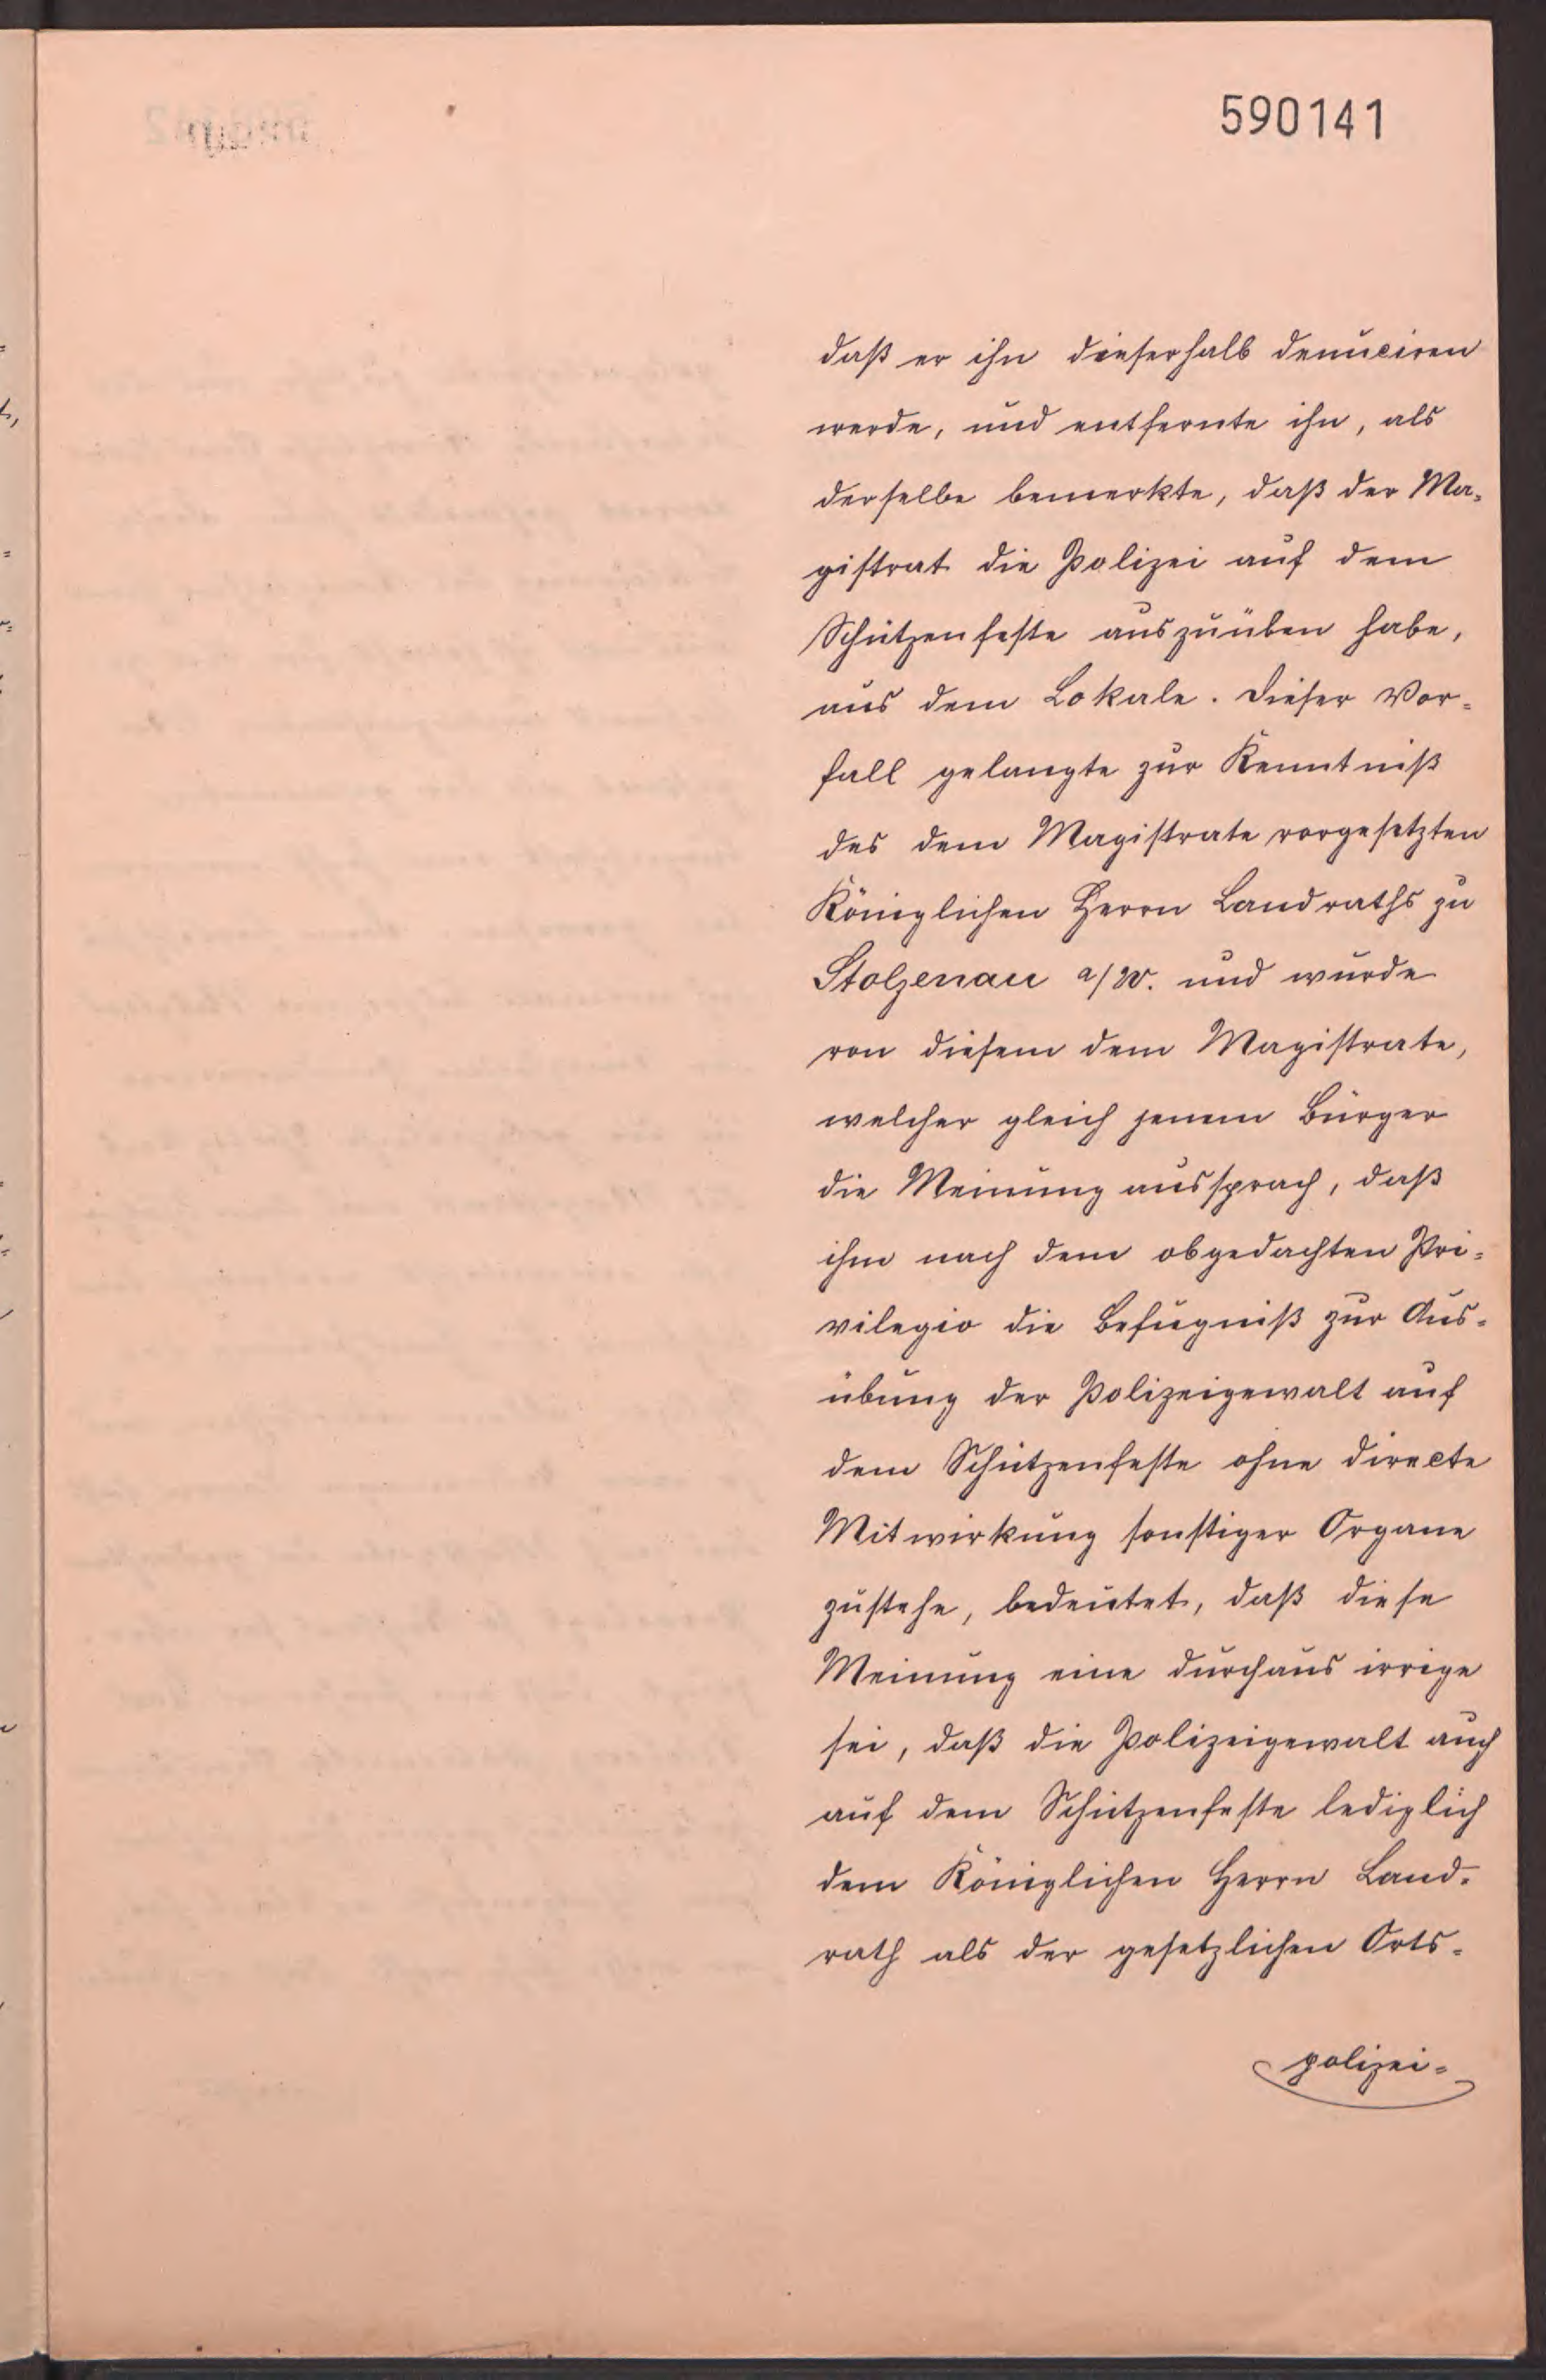 590141
daß er ihn dieserhalb denuciren
werde, und entfernte ihn, als
derselbe bemerkte, daß der Ma-
gistrat die Polizei auf dem
Schützenfeste auszuüben habe,
aus dem Lokale. Dieser Vor-
fall gelangte zur Kenntniß
des dem Magistrate vorgesetzten
Königlichen Herrn Landraths zu
Stolzenau a/W. und wurde
von diesem dem Magistrate,
welcher gleich jenem Bürger
die Meinung aussprach, daß
ihm nach dem obgedachten Pri-
vilegio die Befugniß zur Aus-
übung der Polizeigewalt auf
dem Schützenfeste ohne directe
Mitwirkung sonstiger Organe
zustehe, bedeutet, daß diese
Meinung eine durchaus irrige
sei, daß die Polizeigewalt auch
auf dem Schützenfeste lediglich
dem Königlichen Herrn Land-
rath als der gesetzlichen Orts-
polizei-